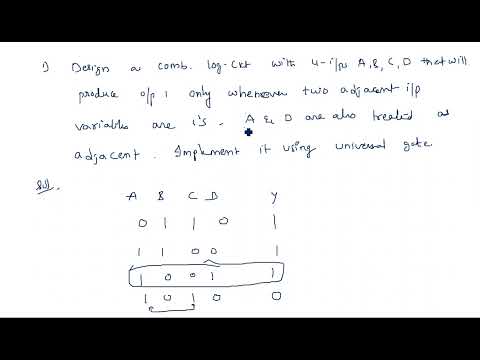 1) Design a comb. log-ckt with 4-i/ps A,B,C,D that will
produce o/p 1 only whenever two adjacent i/p
variables are 1's. A & D are also treated as
adjacent. Implement it using universal gate
Sol.
A B C D Y
0 1 1 0 1
1 1 0 0 1
1 0 0 1 1
1 0 1 0 0